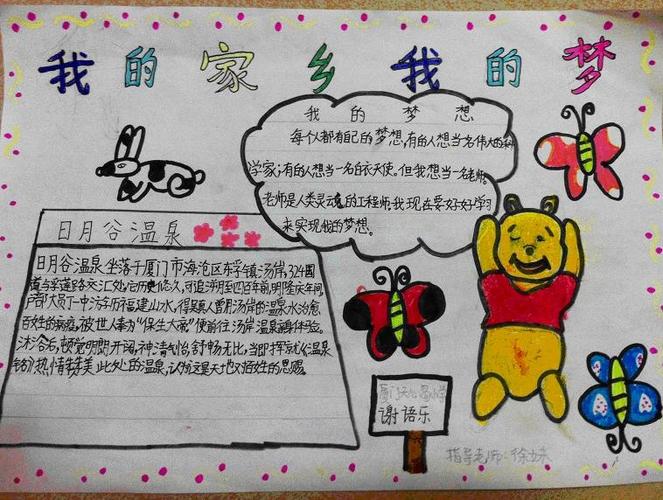 我的家乡我的梦
我的梦想
每个人都有自己的梦想,有的人想当名伟大的科
学家;有的人想当一名白衣天使。但我想当一名老师。
老师是人类灵魂的工程师,我现在要好好学习
来实现我的梦想。
日月谷温泉
日月谷温泉,坐落于厦门市海沧区东孚镇汤岸,324国
道与孚莲路交汇处,历史悠久,可追溯至四百年前,明隆庆年间,
户部大员丁一中游历福建山水,得
汤岸的温泉水治愈
百姓的病疾,被世人奉为“保生大帝”便前往汤岸温泉亲身体验。
沐浴后,顿觉明朗开阔,神清气怡,舒畅无比,当即挥就《温泉
铭》,热情
美此处的温泉,认为这是天地对百姓的恩惠
谢语乐
指导老师:徐妹